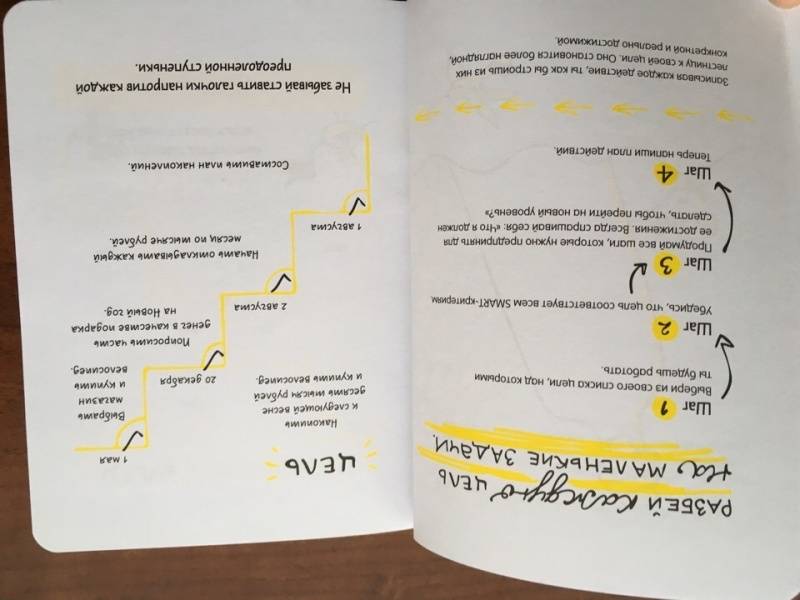 РАЗБЕЙ каждую ЦЕЛЬ
на МАЛЕНЬКИЕ ЗАДАЧИ.
Шаг 1
Выбери из своего списка цели, над которыми
ты будешь работать.
Шаг 2
Убедись, что цель соответствует всем SMART-критериям.
Шаг 3
Продумай все шаги, которые нужно предпринять для
ее достижения. Всегда спрашивай себя: «Что я должен
сделать, чтобы перейти на новый уровень?»
Шаг 4
Теперь напиши план действий.
Записывая каждое действие, ты как бы строишь из них
лестницу к своей цели. Она становится более наглядной,
конкретной и реально достижимой.
ЦЕЛЬ
Накопить
к следующей весне
десять тысяч рублей
и купить велосипед.
1 мая
Выбрать
магазин
и купить
велосипед.
20 декабря
Попросить часть
денег в качестве подарка
на Новый год.
2 августа
Начать откладывать каждый
месяц по тысяче рублей.
1 августа
Составить план накоплений.
Не забывай ставить галочки напротив каждой
преодоленной ступеньки.